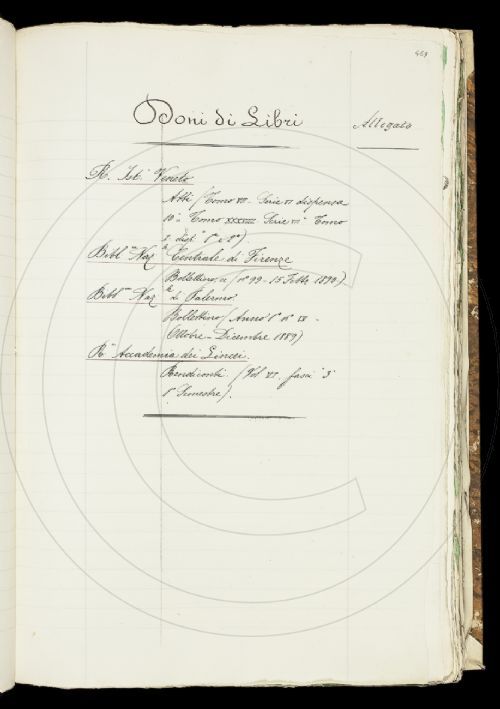 469
Doni di Libri
Allegato
R. Ist. Veneto
Atti (Tomo VII Serie VI dispensa
10a Tomo XXXVIII Serie VIIa Tomo
disp. 1a e 2a)
Bibl.ca Naz.le Centrale di Firenze
Bollettino (no 99 - 15 Febb. 1890)
Bibl.ca Naz.le di Palermo
Bollettino (Anno 1o no IV -
Ottobre - Dicembre 1889)
R.a Accademia dei Lincei
Rendiconti (Vol VI fasc. 3
1o Semestre).